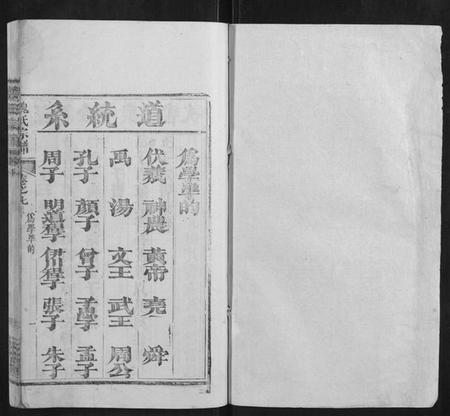 道統系
為學準的
伏羲 神農 黃帝 堯 舜
禹 湯 文王 武王 周公
孔子 顏子 曾子 子思子 孟子
周子 明道程子 伊川程子 張子 朱子
氏宗譜
卷之九
為學準的